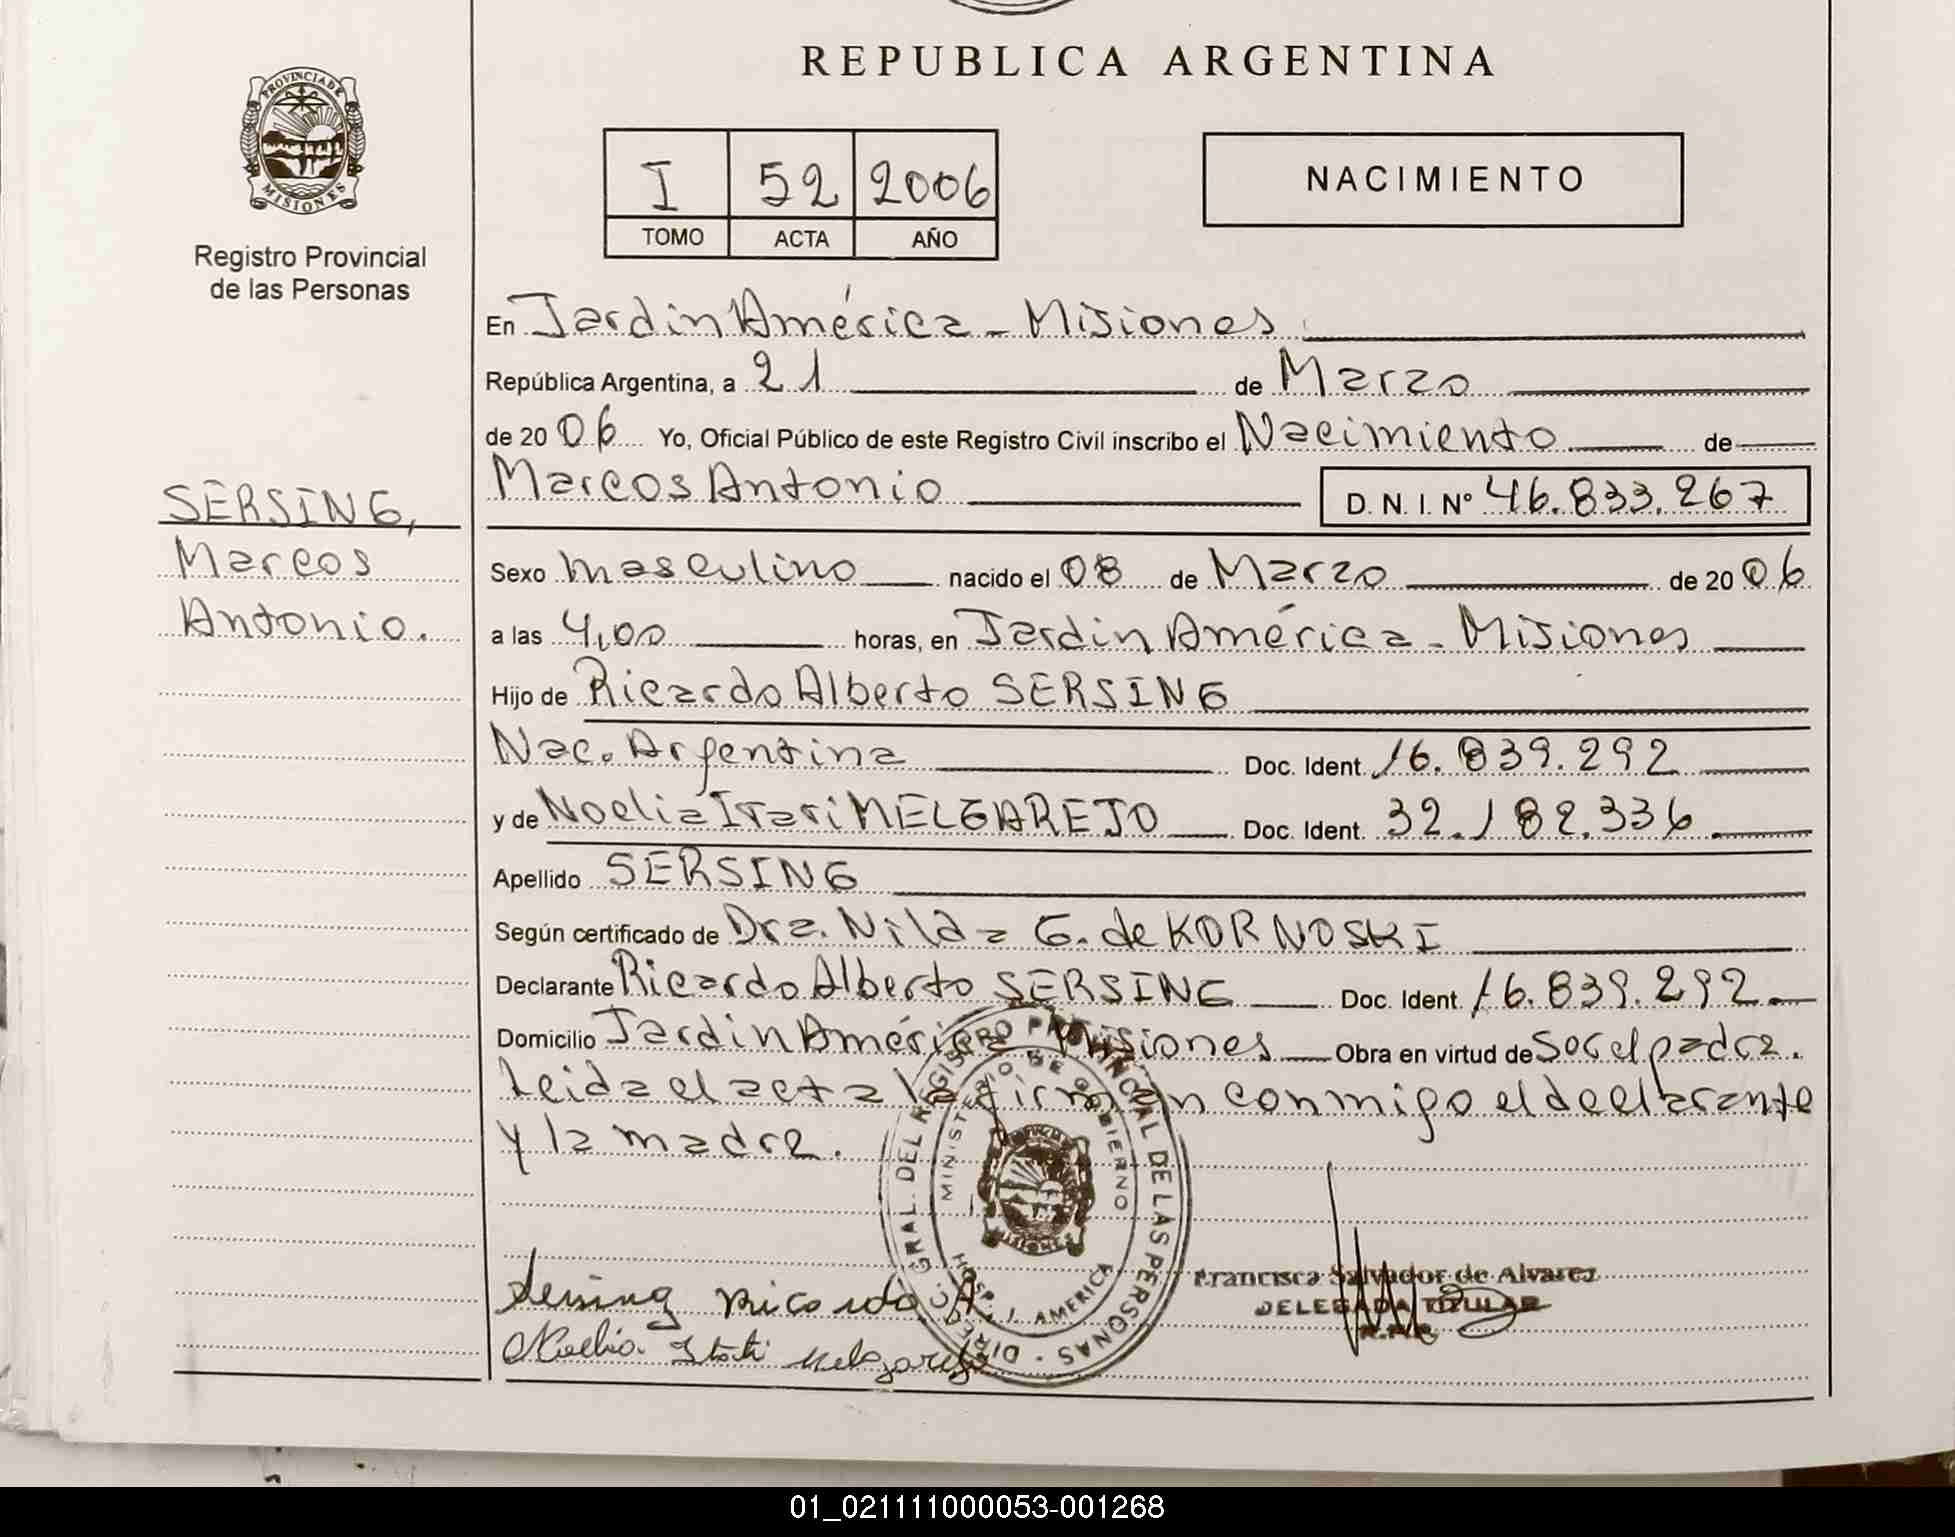 REPUBLICA ARGENTINA
PROVINCIA DE MISIONES
Registro Provincial
de las Personas
I 52 2006
TOMO ACTA AÑO
NACIMIENTO
SERSING,
Marcos
Antonio.
En Jardin América - Misiones
República Argentina, a 21 de Marzo
de 2006 Yo, Oficial Público de este Registro Civil inscribo el Nacimiento de
Marcos Antonio D. N. I. Nº 46.833.267
Sexo masculino nacido el 08 de Marzo de 2006
a las 4,00 horas, en Jardin América - Misiones
Hijo de Ricardo Alberto SERSING
Nac. Argentina Doc. Ident. 16.839.292
y de Noelia Itati MELGAREJO Doc. Ident. 32.182.336
Apellido SERSING
Según certificado de Dra. Nilda G. de KORNOSKI
Declarante Ricardo Alberto SERSING Doc. Ident. 16.839.292
Domicilio Jardin América Misiones Obra en virtud de Ser el padre.
Leida el acta la firman conmigo el declarante
y la madre.
DIREC. GRAL. DEL REGISTRO PROVINCIAL DE LAS PERSONAS
MINISTERIO DE GOBIERNO
HOSP. J. AMERICA
MISIONES
Francisca Salvador de Alvarez
DELEGADA TITULAR
R.P.P.
Sersing Ricardo A.
Noelia Itati Melgarejo
01_021111000053-001268